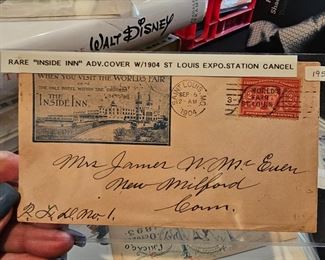 Walt Disney
RARE "INSIDE INN" ADV.COVER W/1904 ST LOUIS EXPO.STATION CANCEL
195
WHEN YOU VISIT THE WORLD'S FAIR
THE ONLY HOTEL WITHIN THE GROUNDS
THE
INSIDE INN
SAINT LOUIS, MO.
SEP 9
12-AM
1904
3
WORLD'S
FAIR
ST. LOUIS
Mrs James W. McEuen
New Milford
Conn.
R.F.D. No 1.
Chicago
1893